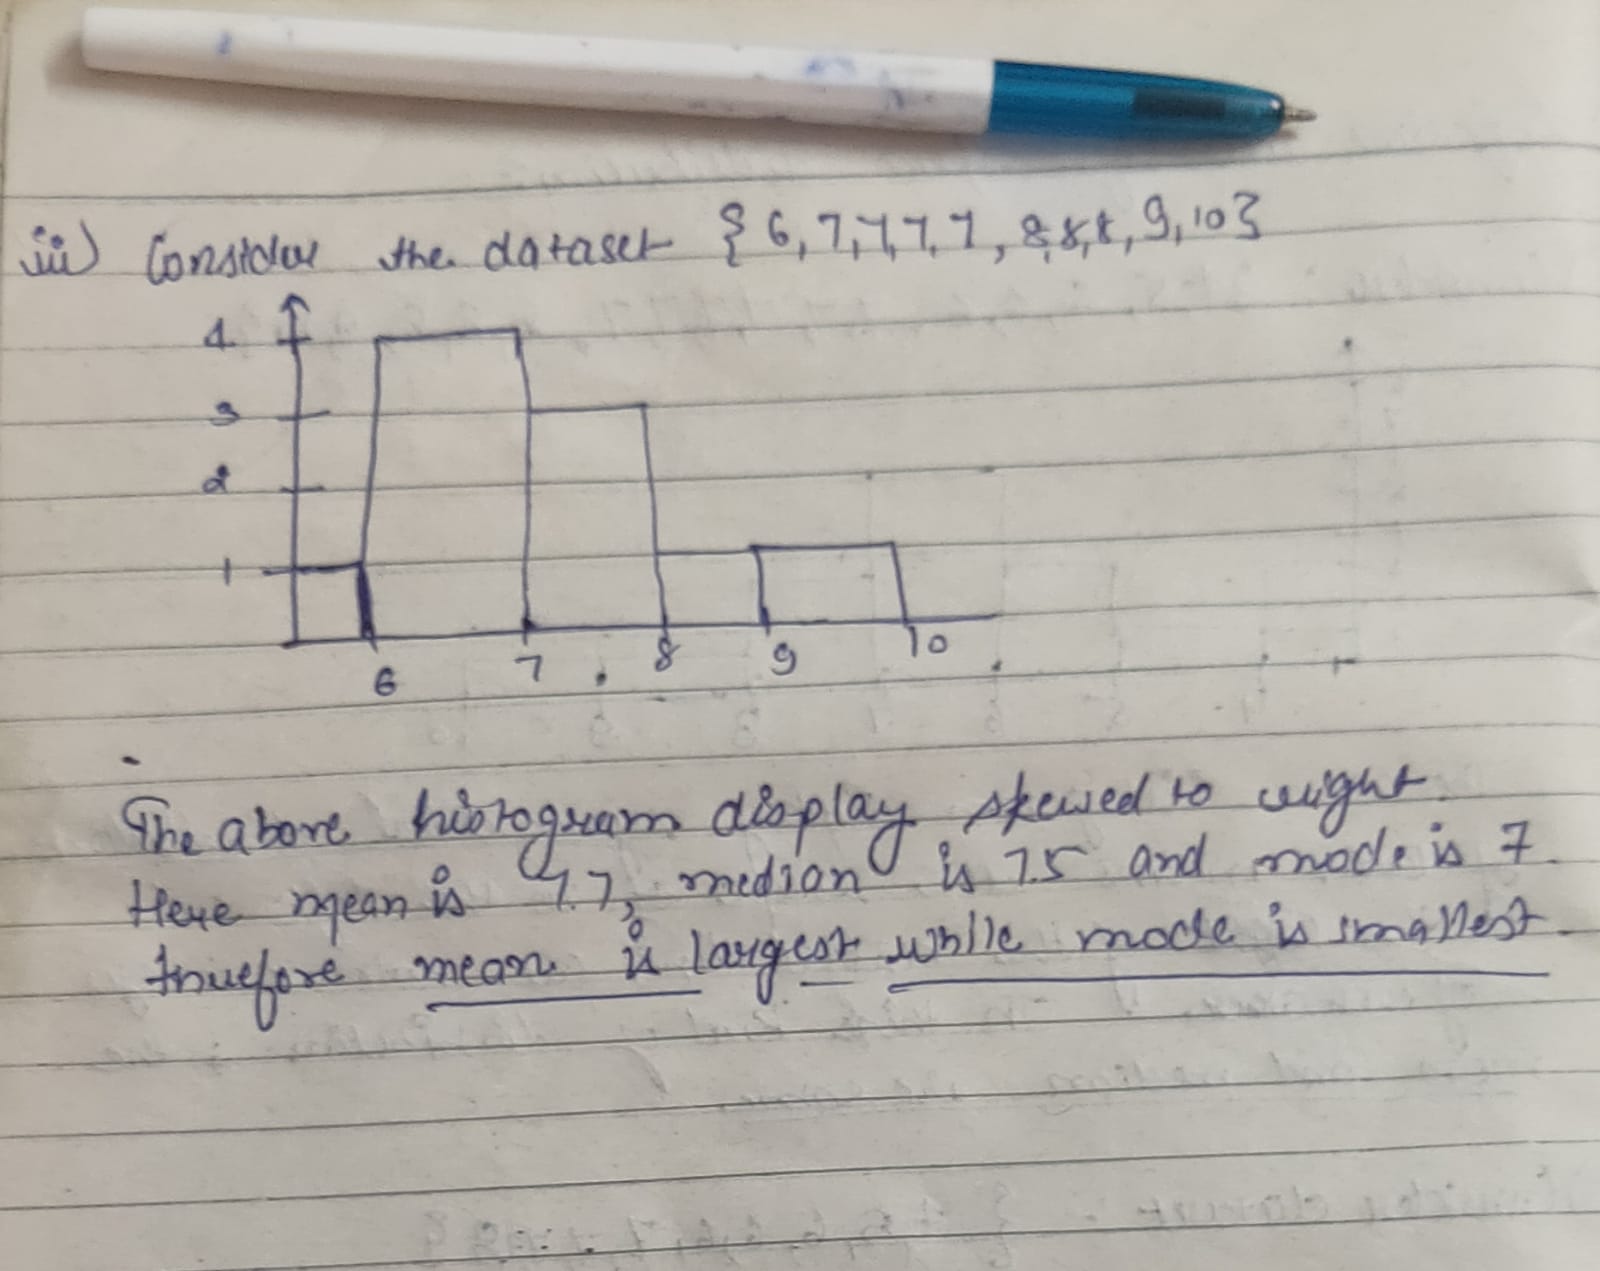 iii) Consider the dataset {6,7,7,7,7,8,8,8,9,10}
4
3
2
1
6 7 8 9 10
The above histogram display skewed to right.
Here mean is 7.7, median is 7.5 and mode is 7.
therefore mean is largest while mode is smallest.